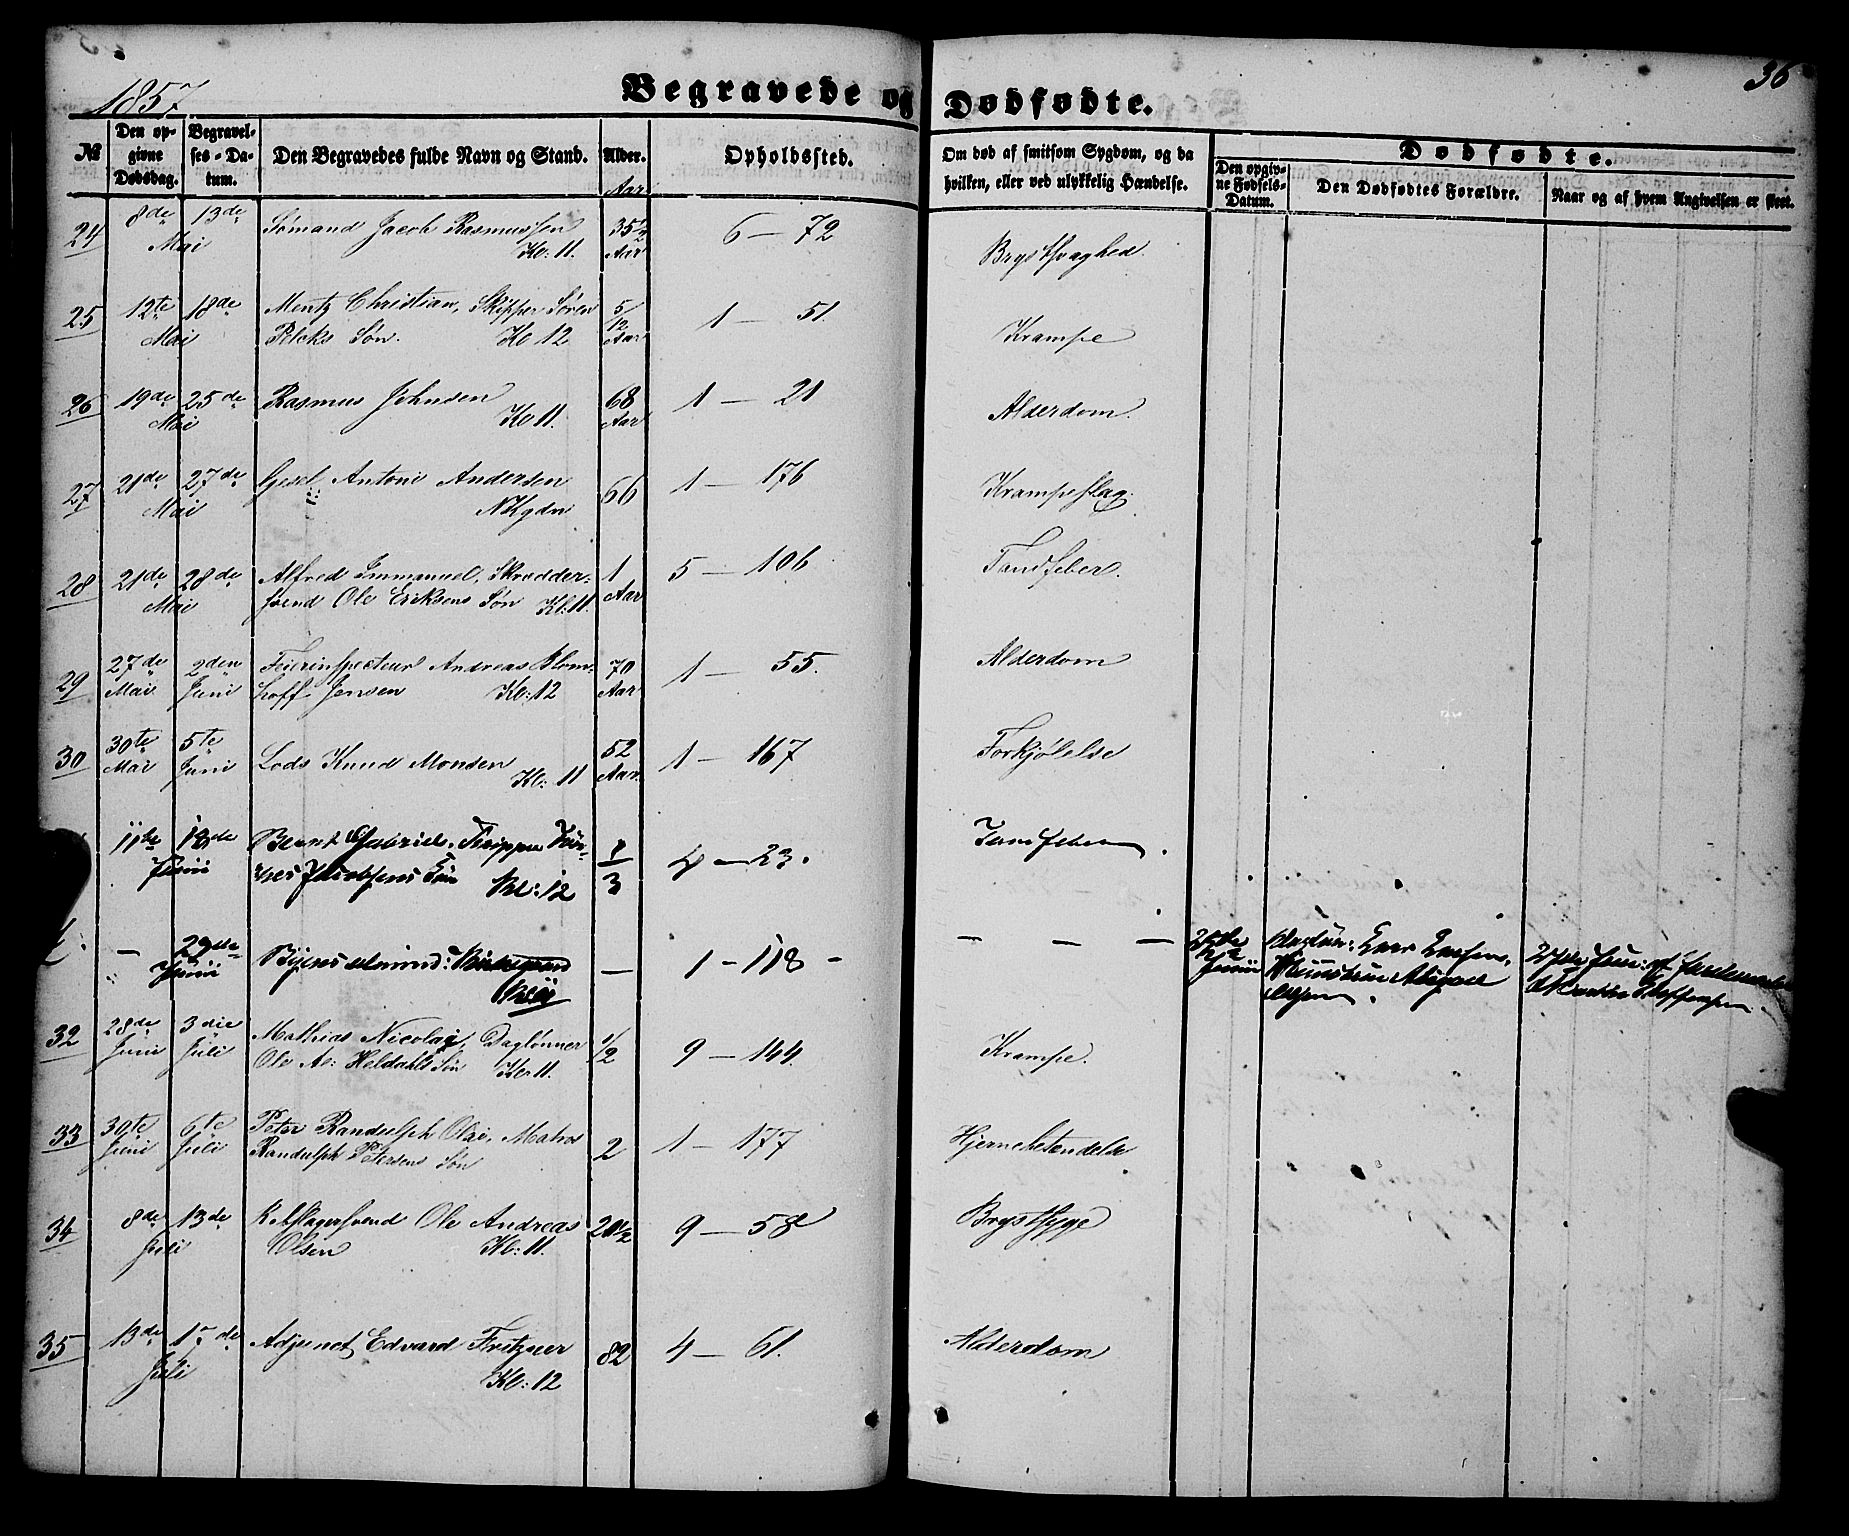 1857
36
Begravede og Dødfødte.
№
Den opgivne Dødsdag.
Begravelses-Datum.
Den Begravedes fulde Navn og Stand.
Alder.
Aar
Opholdssted.
Om død af smitsom Sygdom, og da hvilken, eller ved ulykkelig Hændelse.
Dødfødte.
Den opgivne Fødsels-Datum.
Den Dødfødtes Forældre.
Naar og af hvem Angivelsen er skeet.
24 8de 13de Sømand Jacob Rasmussen 35½ 6 — 72 Brystsvaghed.
Mai Kl: 11. Aar
25 12te 18de Mentz Christian, Skipper Søren 5/12 1 — 51. Krampe
Mai Pilcks Søn. Kl 12 Aar
26 19de 25de Rasmus Johnsen 68 1 — 21 Alderdom.
Mai Kl 11. Aar
27 21de 27de Gesel: Antoni Andersen 66 1 — 176 Krampeslag.
Mai NKgdn
28 21de 28de Alfred Immanuel, Skrædder- 1 5 — 106 Tandfeber.
Mai svend Ole Eriksens Søn Kl: 11. Aar
29 27de 2den Feierinspecteur Andreas Blom- 70 1 — 55. Alderdom
Mai Juni hoff Jensen Kl: 12 Aar
30 30te 5te Lods Knud Monsen 52 1 — 167 Forkjølelse
Mai Juni Kl: 11 Aar
11te 18de Bernt Gabriel, 1/3 4 — 23. Tandfeber
Junii Jacobsens Søn Kl: 12
— 29de — 1 — 118 - — — — 25de Lars Larsen, 27de Juni af
Junii Junii
32 28de 3die Mathias Nicolai, Daglønner 1/2 9 — 144. Krampe.
Juni Juli Ole As: Heldahls Søn Kl: 11.
33 30te 6te Peter Randulph Olai, Matros 2 1 — 177 Hjernebetændelse
Juni Juli Randulph Petersens Søn
34 8de 13de Rebslagersvend Ole Andreas 20½ 9 — 58 Brystsyge
Juli Olsen Kl: 11.
35 13de Adjunct Edvard Fritzner 82 4 — 61. Alderdom
Juli Kl: 12